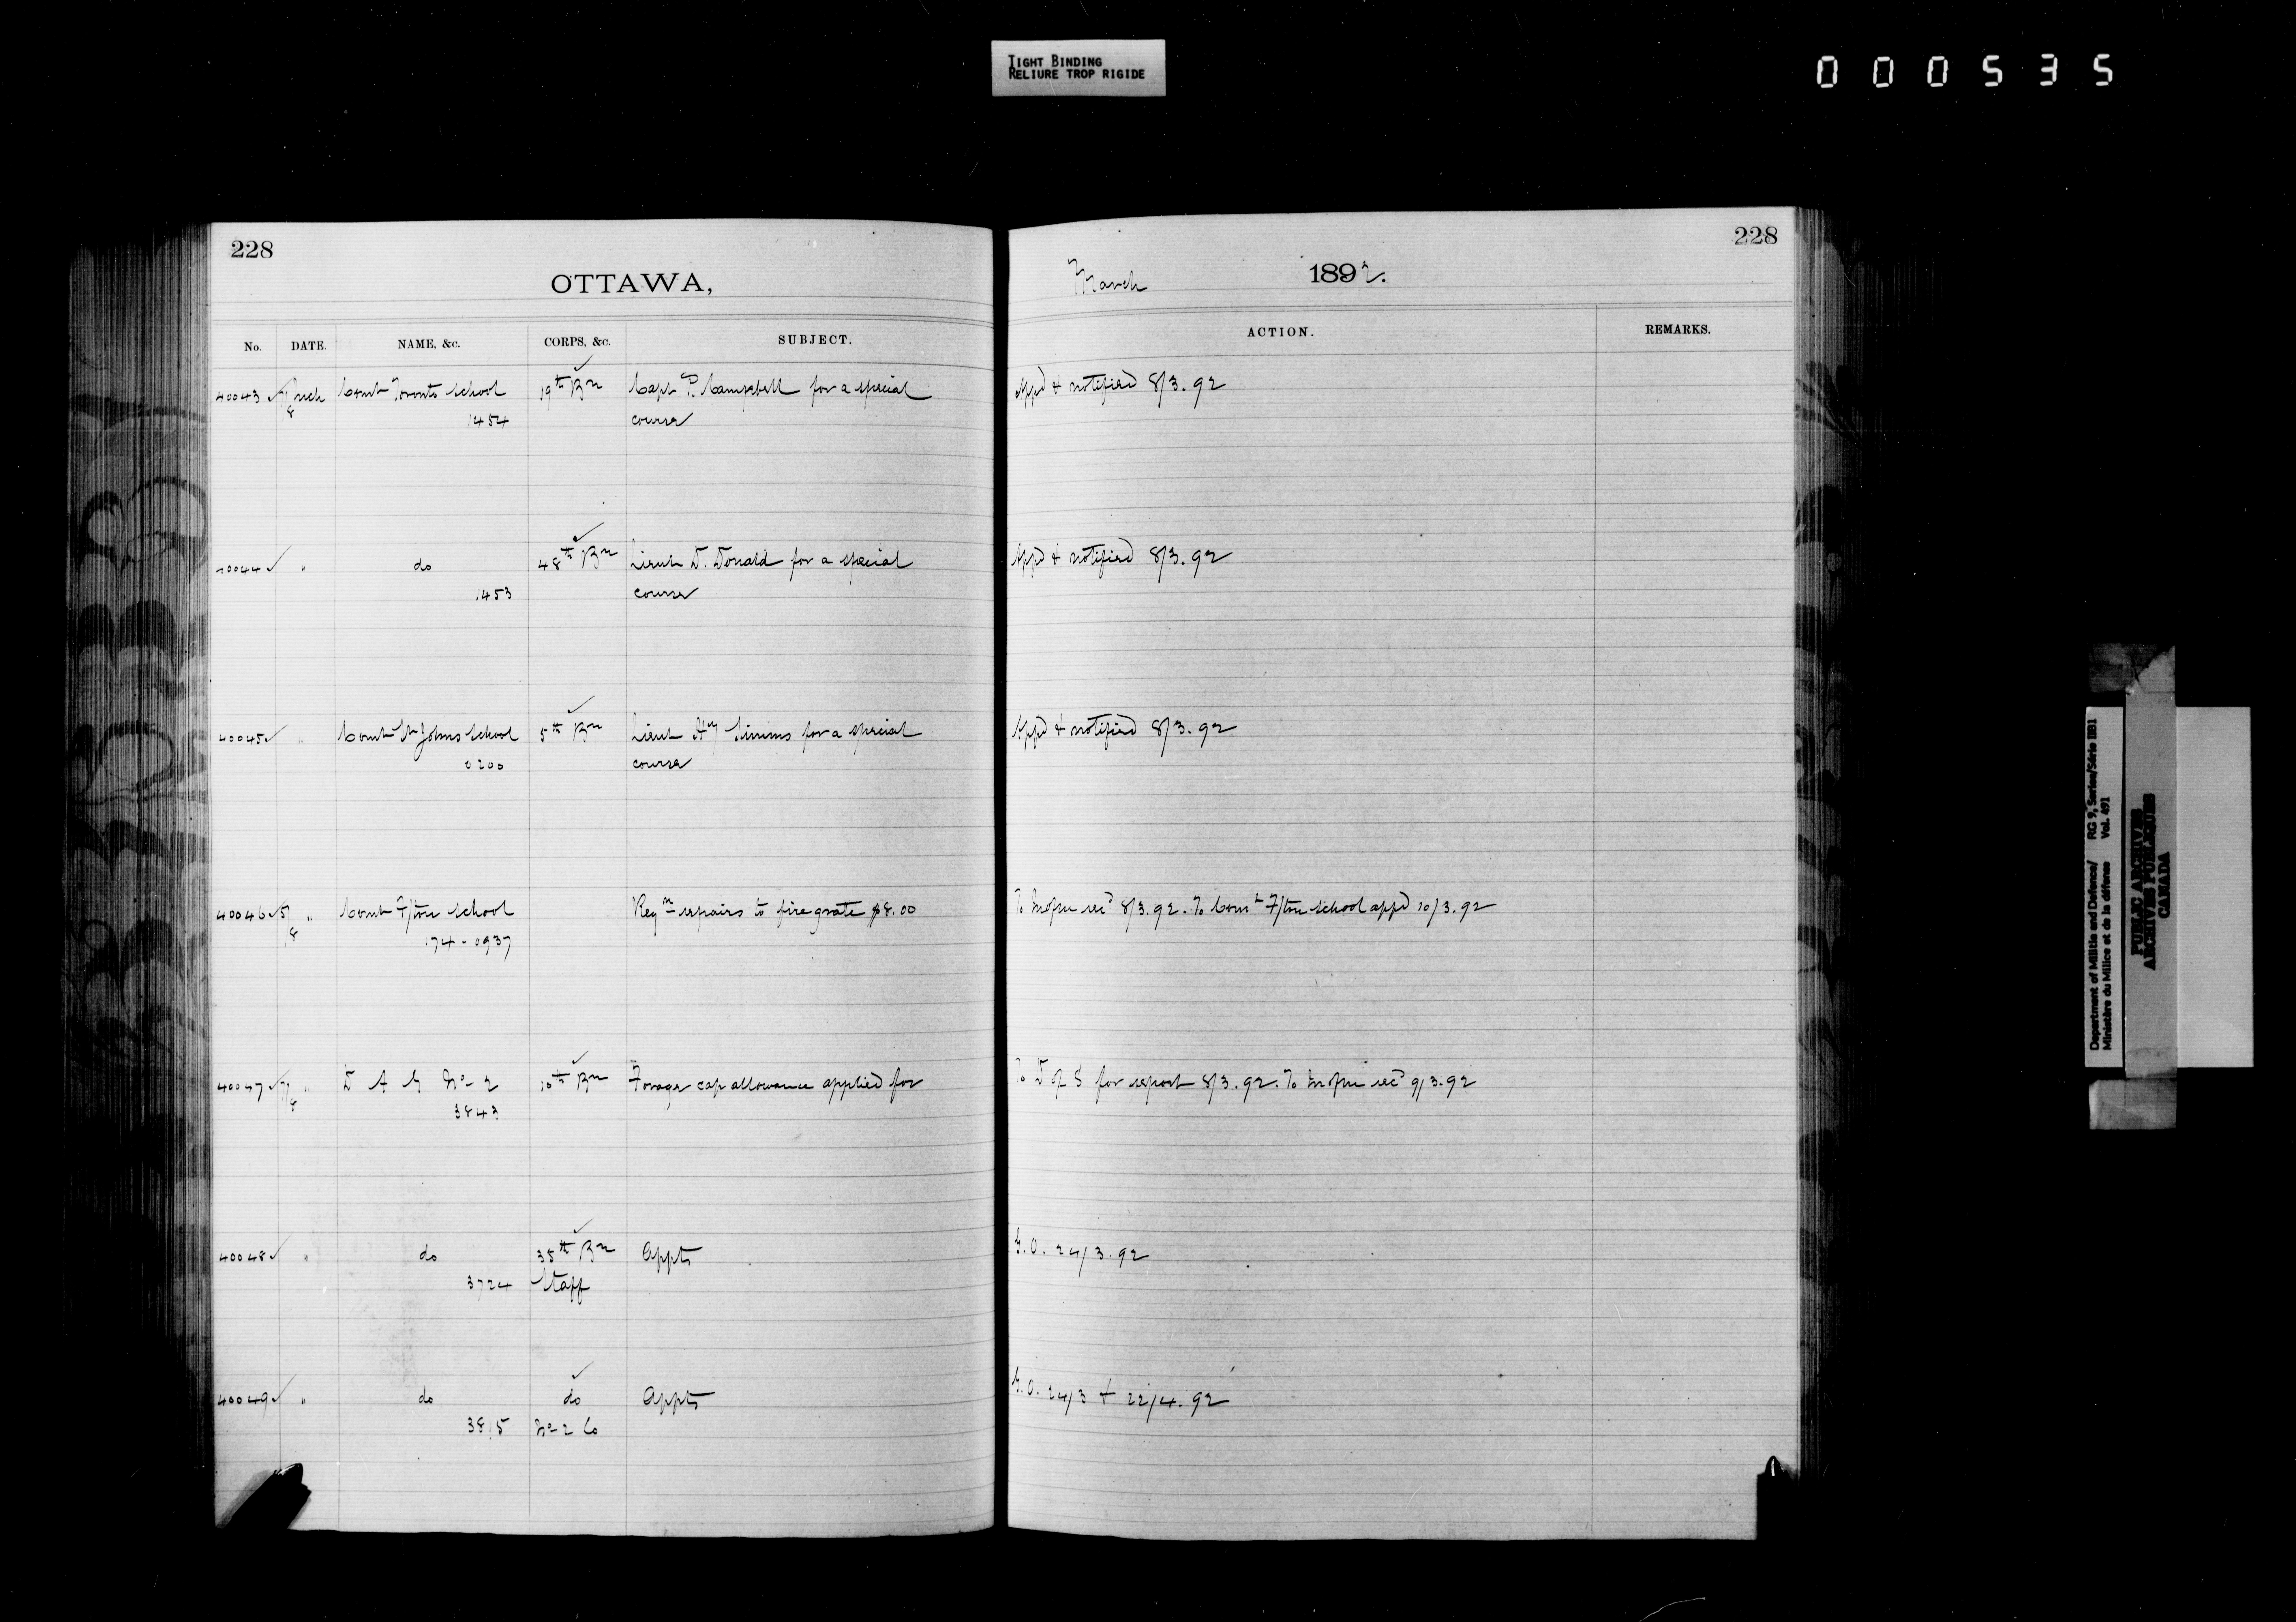 TIGHT BINDING
RELIURE TROP RIGIDE
000535
228
OTTAWA,
No. DATE. NAME, &c. CORPS, &c. SUBJECT.
40043 7/8 Mch Comt Toronto School 19th Bn Capt P. Campbell for a special
1454 course
40044 " do 48th Bn Lieut D. Donald for a special
1453 course
40045 " Comt St Johns School 5th Bn Lieut Hy Simms for a special
0200 course
40046 5/8 " Comt F/ton School Reqn repairs to fire grate $8.00
174-0937
40047 7/8 " D A G No 2 10th Bn Forage cap allowance applied for
3843
40048 " do 35th Bn Appts
3724 Staff
40049 " do do Appts
3815 No 2 Co
228
March 1892.
ACTION. REMARKS.
Appd & notified 8/3.92
Appd & notified 8/3.92
Appd & notified 8/3.92
To recd 8/3.92. To Comt F/ton School appd 10/3.92
To D of S for report 8/3.92. To recd 9/3.92
G.O. 24/3.92
G.O. 24/3 & 22/4.92
Department of Militia and Defence/ RG 9, Series/Série IIB1
Ministère du Milice et de la défence Vol. 491
PUBLIC ARCHIVES
ARCHIVES PUBLIQUES
CANADA